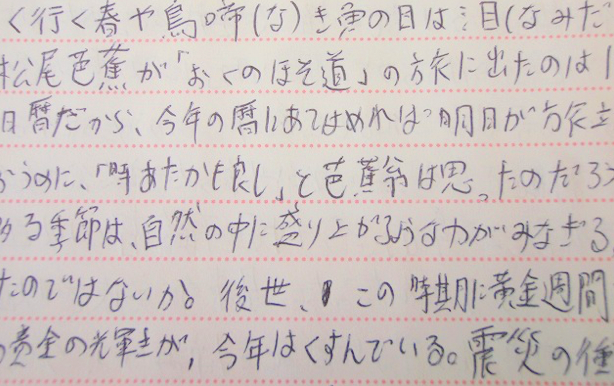 く行く春や鳥啼(な)き魚の目は泪(なみだ
松尾芭蕉が「おくのほそ道」の旅に出たのは1
日暦だから、今年の暦にあてはめれば明日が旅立
うのに、「時あたかも良し」と芭蕉翁は思ったのだろう
る季節は、自然の中に盛り上がるような力がみなぎる
たのではないか。後世、この時期に黄金週間
黄金の光輝きが、今年はくすんでいる。震災の